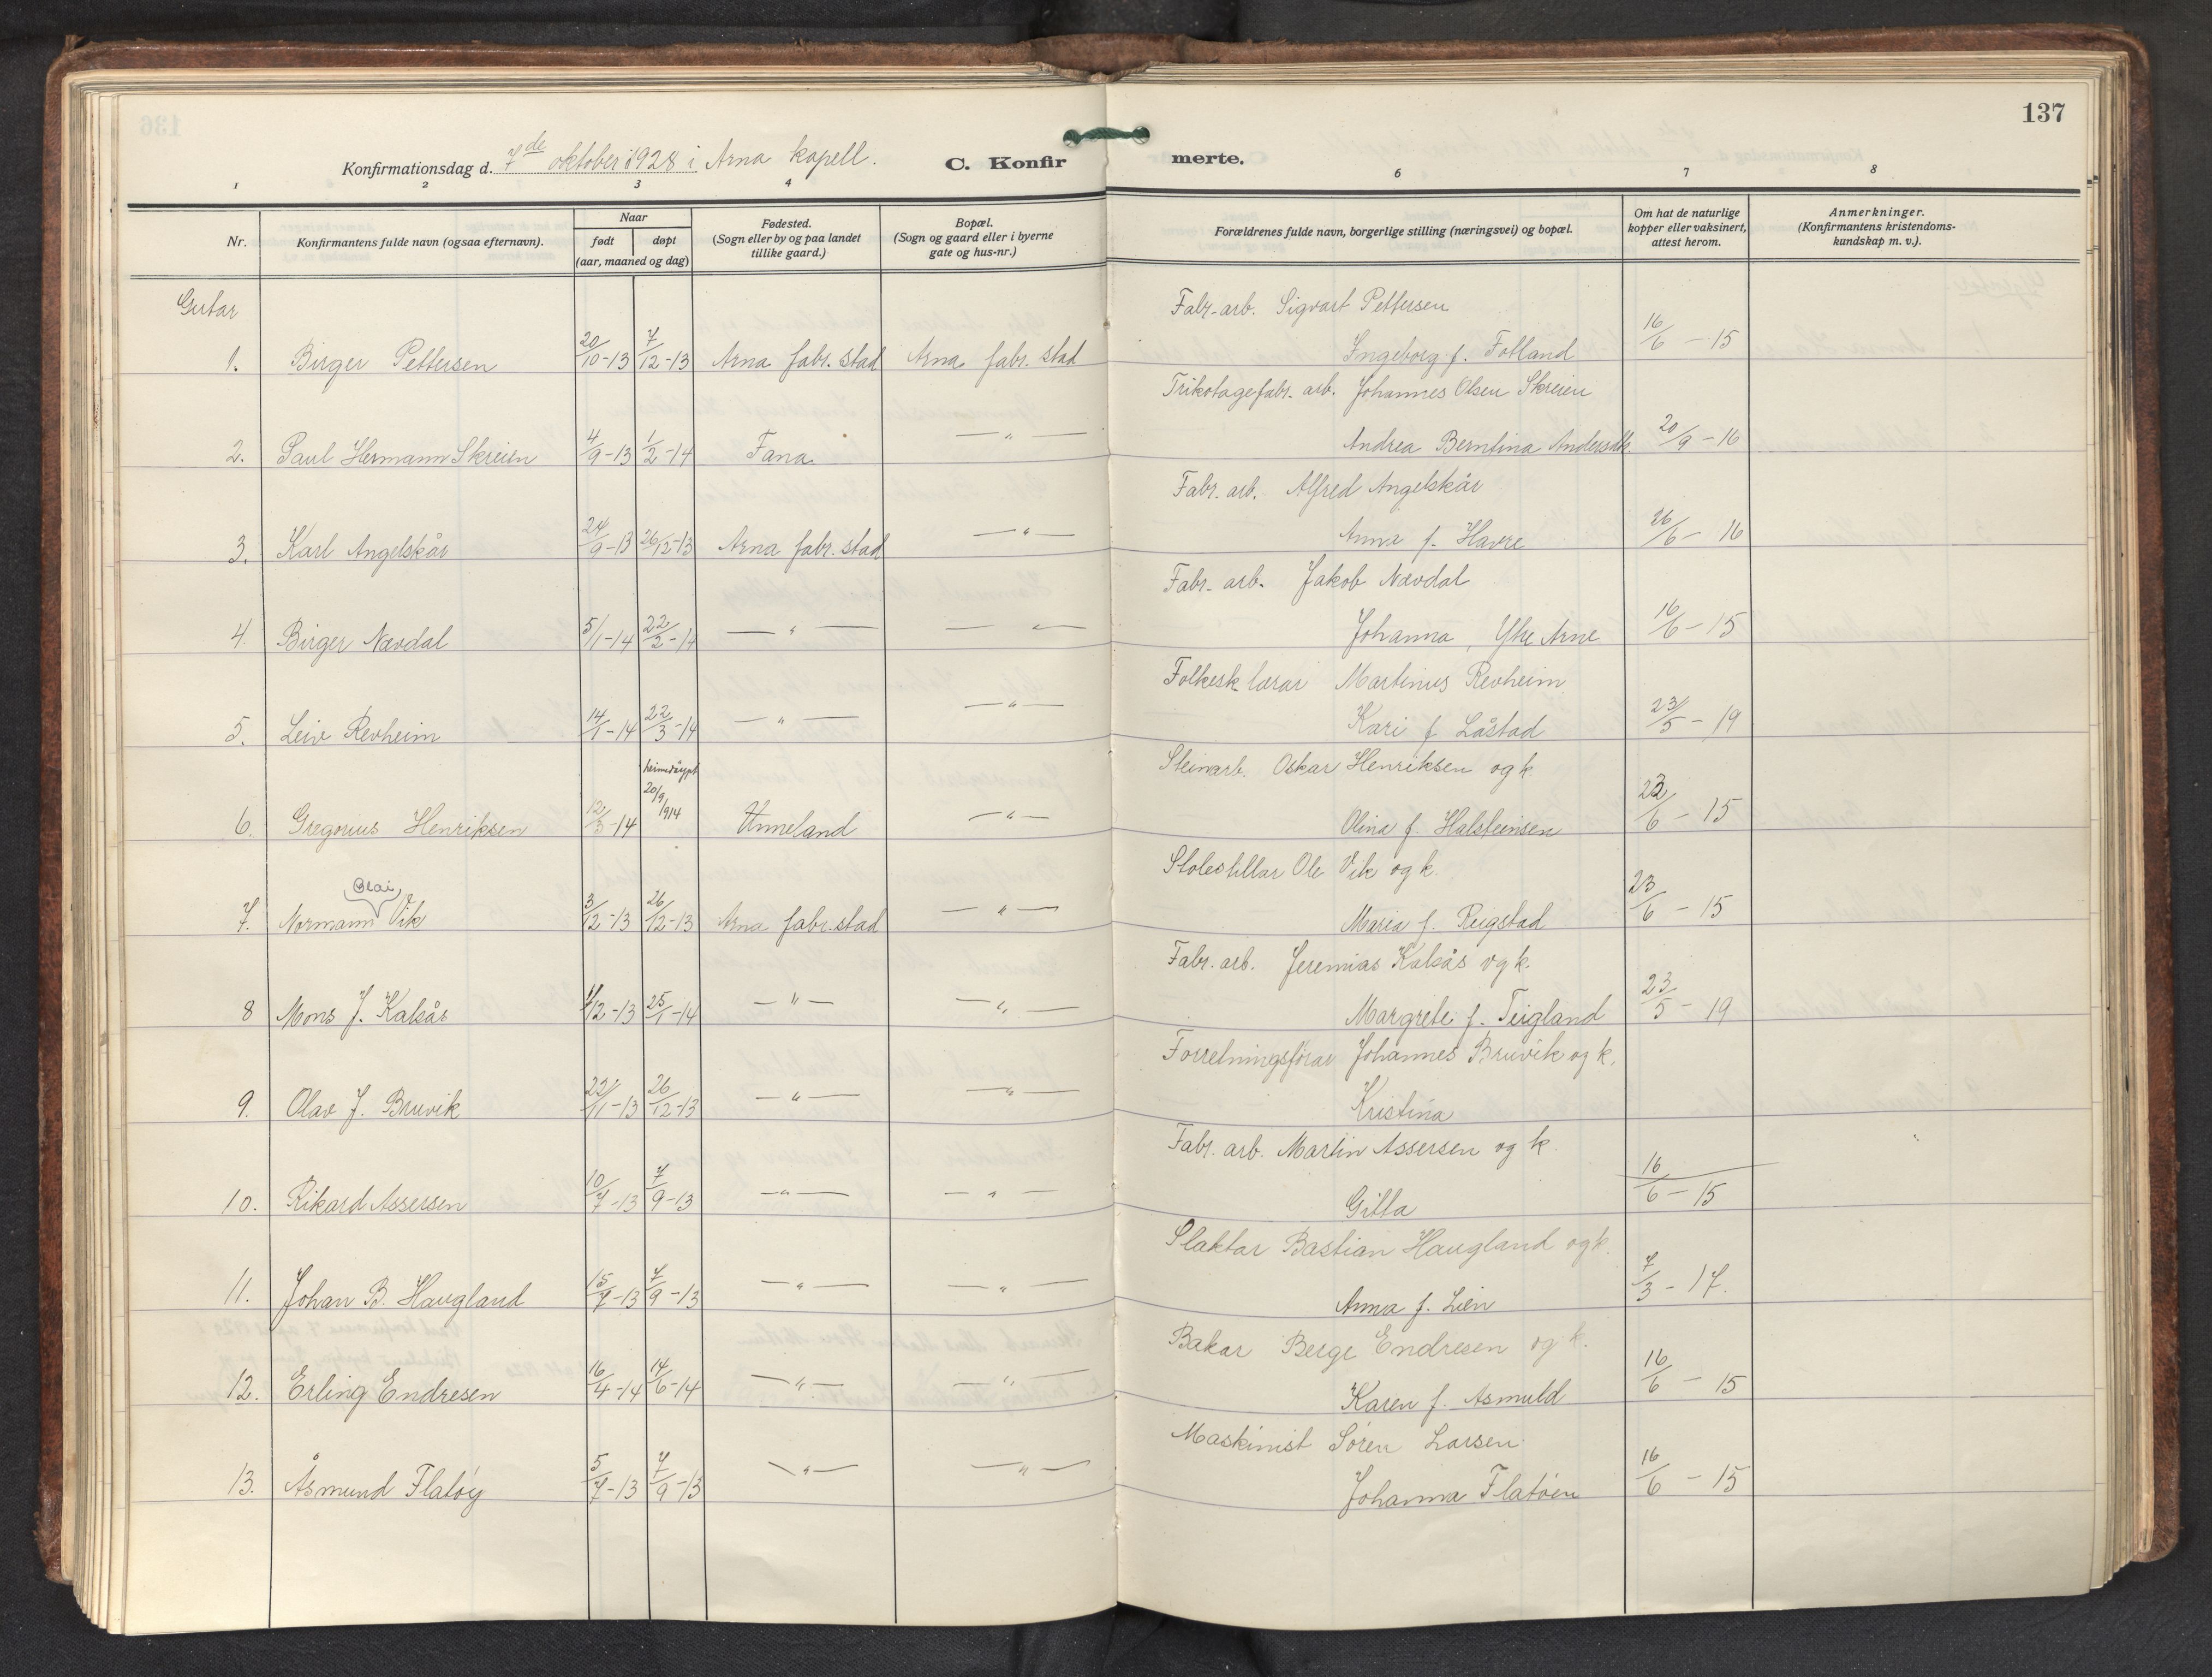 137
Konfirmationsdag d. 7de oktober 1928 i Arna kapell.
C. Konfirmerte.
1 2 3 4 6 7 8
Nr.
Konfirmantens fulde navn (ogsaa efternavn).
Naar
født døpt
(aar, maaned og dag)
Fødested.
(Sogn eller by og paa landet
tillike gaard.)
Bopæl.
(Sogn og gaard eller i byerne
gate og hus-nr.)
Forældrenes fulde navn, borgerlige stilling (næringsvei) og bopæl.
Om hat de naturlige
kopper eller vaksinert,
attest herom.
Anmerkninger.
(Konfirmantens kristendoms-
kundskap m. v.).
Gutar
Fabr. arb. Sigvart Pettersen
1. Birger Pettersen 20/10-13 7/12-13 Arna fabr. stad Arna fabr. stad Ingeborg f. Fotland 16/6-15
Trikotagefabr. arb. Johannes Olsen Skreien
2. Paul Hermann Skreien 4/9-13 1/2-14 Fana — " — Andrea Berntina Andersdtr. 20/9-16
Fabr. arb. Alfred Angelskår
3. Karl Angelskår 24/9-13 26/12-13 Arna fabr. stad — " — Anna f. Havre 26/6-16
Fabr. arb. Jakob Nævdal
4. Birger Nævdal 5/1-14 22/3-14 — " — — " — Johanna, Ytre Arne 16/6-15
Folkesk. lærar Martinus Revheim
5. Leiv Revheim 14/1-14 22/3-14 — " — — " — Kari f. Låstad 23/5-19
Steinarb. Oskar Henriksen og k.
heimedøypt
20/9 1914
6. Gregorius Henriksen 12/3-14 Unneland — " — Olina f. Halsteinsen 23/6-15
Stolestillar Ole Vik og k.
Blai
7. Normann Vik 3/12-13 26/12-13 Arna fabr. stad — " — Maria f. Reigstad 23/6-15
Fabr. arb. Jeremias Kalsås og k.
8 Mons J. Kalsås 1/12-13 25/1-14 — " — — " — Margrete f. Teigland 23/5-19
Forretningsførar Johannes Bruvik og k.
9. Olav J. Bruvik 22/11-13 26/12-13 — " — — " — Kristina
Fabr. arb. Martin Assersen og k.
10. Rikard Assersen 10/7-13 7/9-13 — " — — " — Gitta 16/6-15
Slaktar Bastian Haugland og k.
11. Johan B. Haugland 15/7-13 7/9-13 — " — — " — Anna f. Lien 7/3-17.
Bakar Berge Endresen og k.
12. Erling Endresen 16/4-14 14/6-14 — " — — " — Karen f. Asmuld 16/6-15
Maskinist Søren Larsen
13. Åsmund Flatøy 5/7-13 7/9-13 — " — — " — Johanna Flatøen 16/6-15